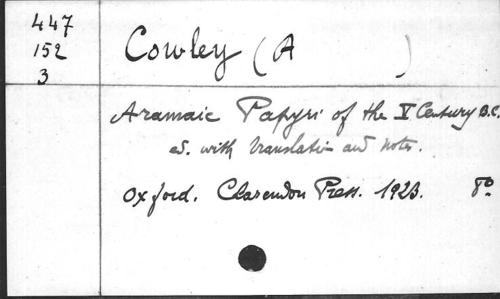 447
152
3
Cowley (A )
Aramaic Papyri of the V Century B.C.
ed. with translation and notes.
Oxford. Clarendon Press. 1923. 8º